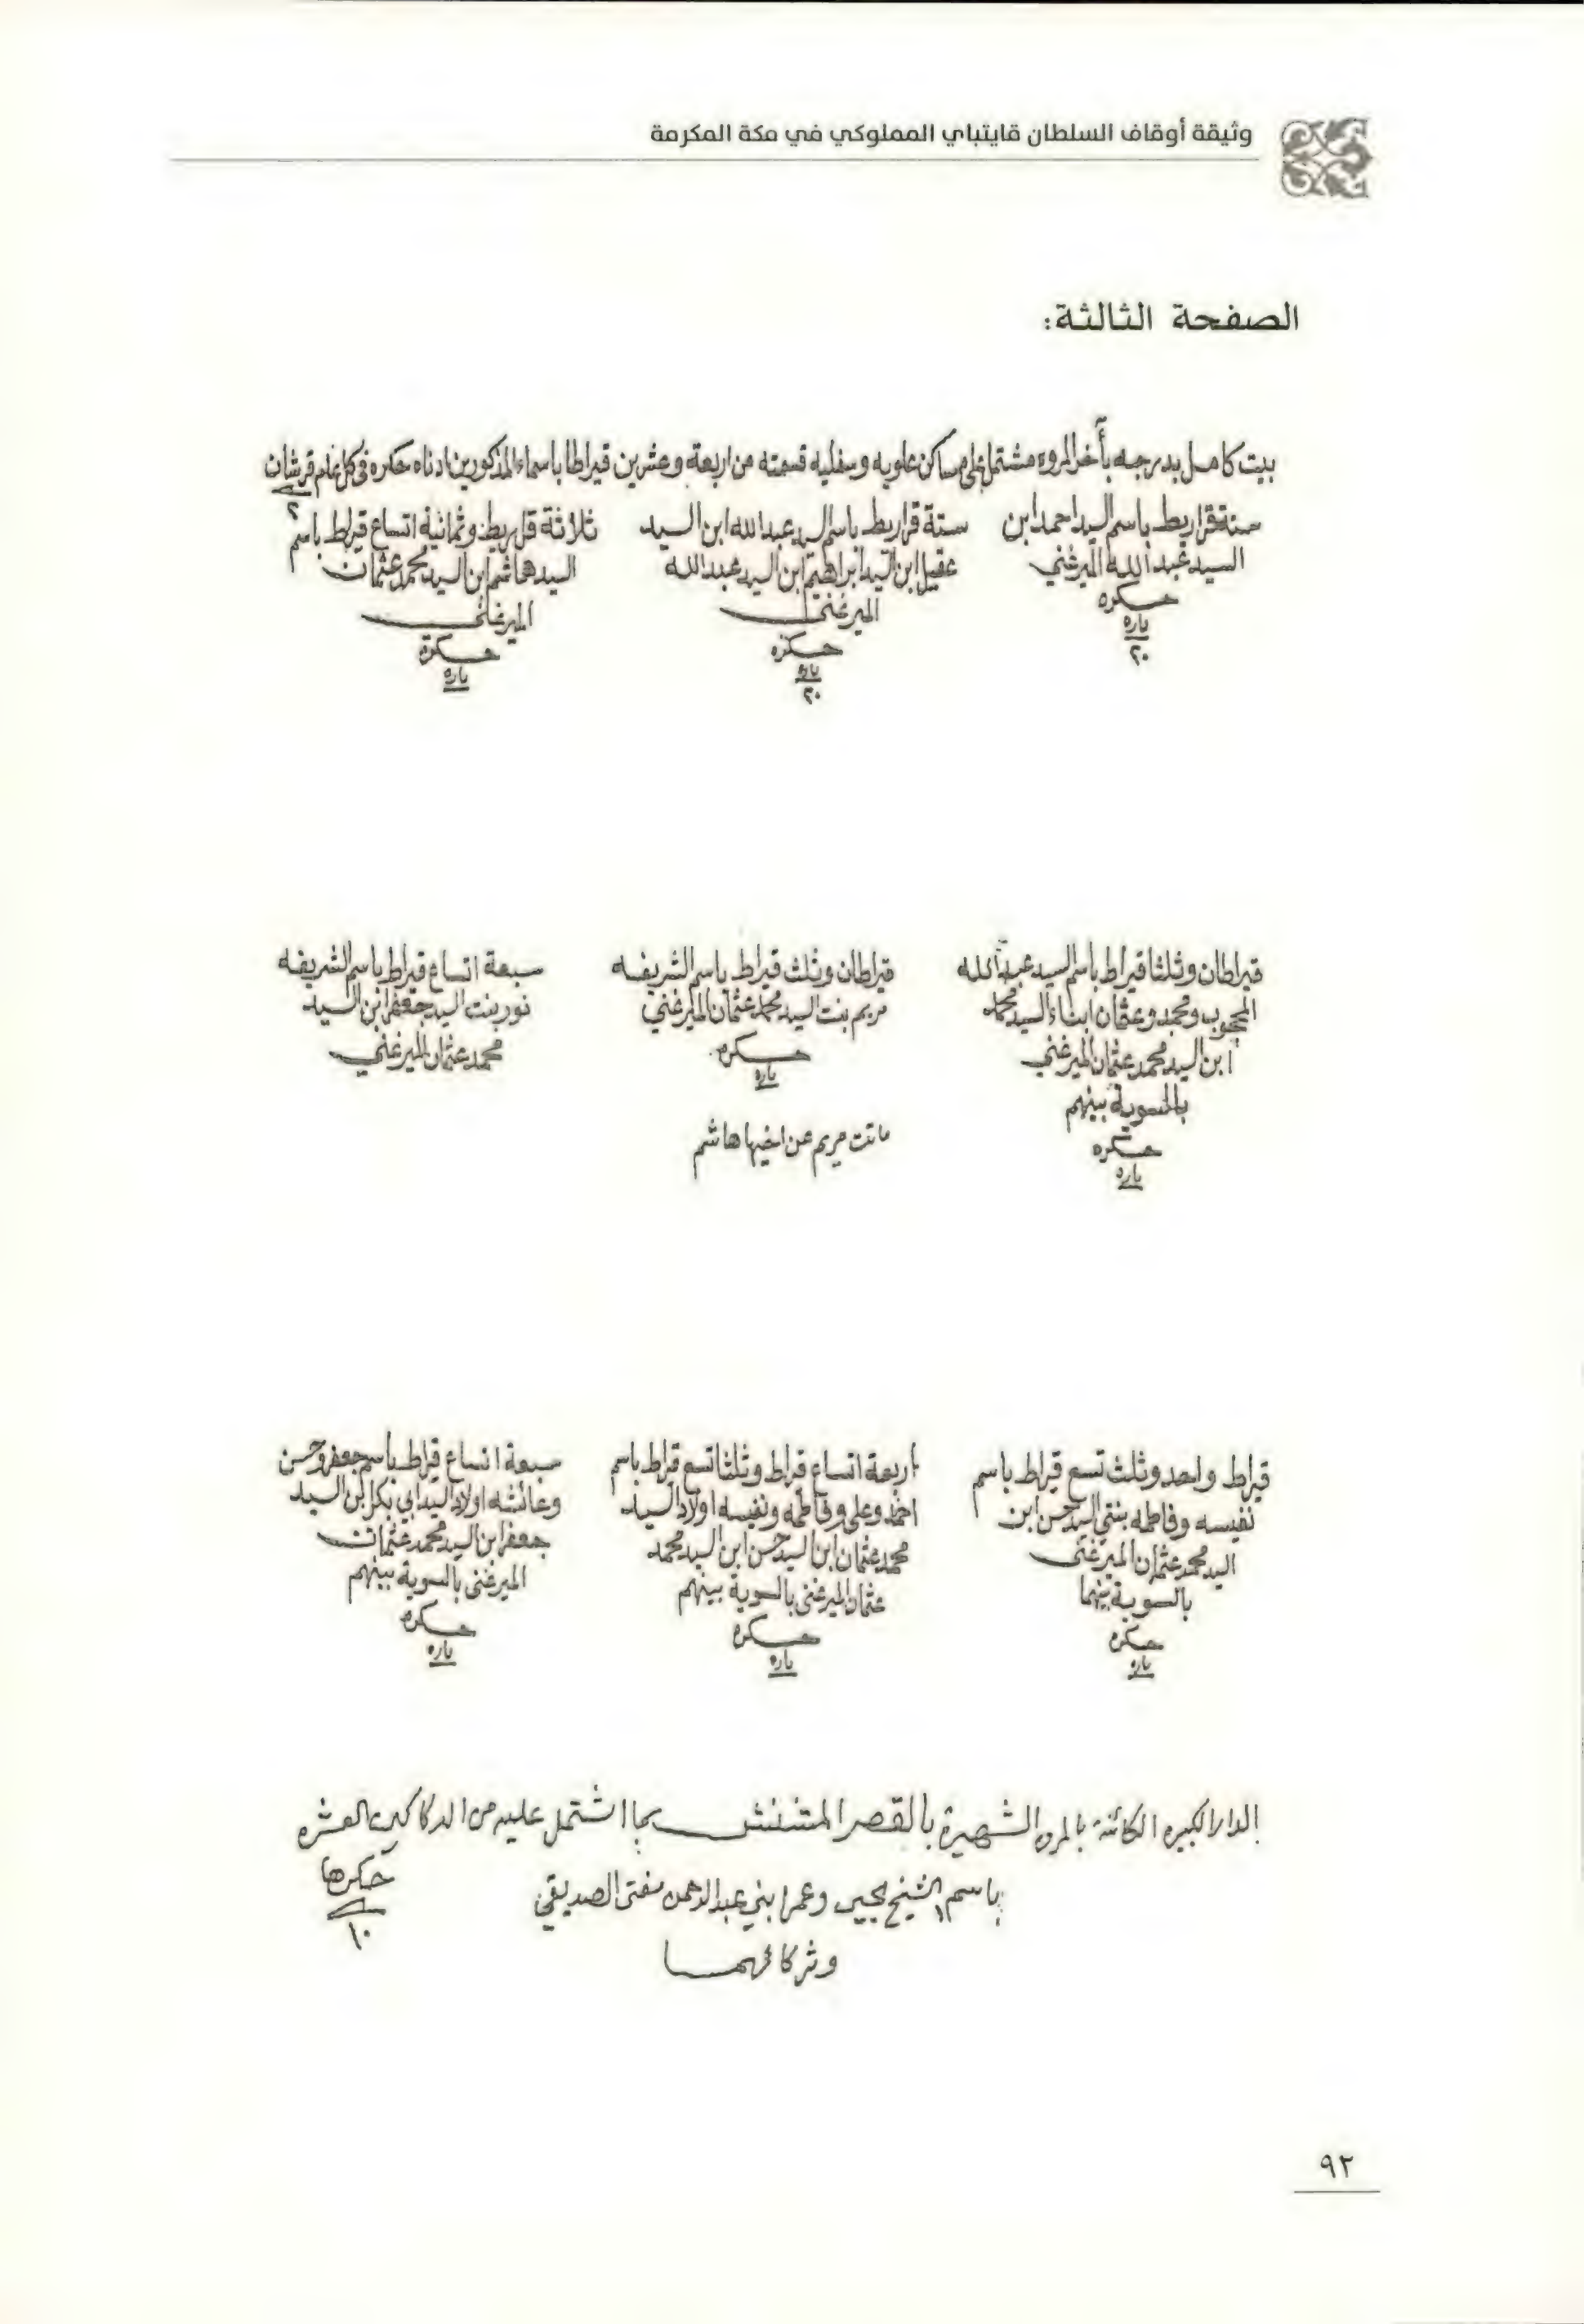 وثيقة أوقاف السلطان قايتباي المملوكي في مكة المكرمة
الصفحة الثالثة:
بيت كامل بدرجه بآخر المروه مشتمل على مساكن علويه وسفليه قسمته من اربعة وعشرين قيراطا باسماء المذكورين ادناه حكره في كل عام قرشان
٢
ستة قراريط باسم السيد احمد ابن
السيد عبد الله الميرغني
حكره
باره
٢٠
ستة قراريط باسم السيد عبد الله ابن السيد
عقيل ابن السيد ابراهيم ابن السيد عبد الله
الميرغني
حكره
باره
٢٠
ثلاثة قراريط وثمانية اتساع قيراط باسم
السيد هاشم ابن السيد محمد عثمان
الميرغني
حكرة
باره
قيراطان وثلثا قيراط باسم السيد عبد الله
المحجوب ومحمد وعثمان ابناء السيد محمد
ابن السيد محمد عثمان الميرغني
بالسوية بينهم
حكره
باره
قيراطان وثلث قيراط باسم الشريفه
مريم بنت السيد محمد عثمان الميرغني
حكره
باره
ماتت مريم عن اخيها هاشم
سبعة اتساع قيراط باسم الشريفه
نور بنت السيد جعفر ابن السيد
محمد عثمان الميرغني
قيراط واحد وثلث تسع قيراط باسم
نفيسه وفاطمه بنتي السيد حسن ابن
السيد محمد عثمان الميرغني
بالسوية بينهما
حكره
باره
اربعة اتساع قيراط وثلثا تسع قيراط باسم
احمد وعلي وفاطمه ونفيسه اولاد السيد
محمد عثمان ابن السيد حسن ابن السيد محمد
عثمان الميرغني بالسوية بينهم
حكره
باره
سبعة اتساع قيراط باسم جعفر وحسن
وعائشه اولاد السيد ابي بكر ابن السيد
جعفر ابن السيد محمد عثمان
الميرغني بالسوية بينهم
حكره
باره
الدار الكبيره الكائنة بالمروه الشهيرة بالقصر المشنشن بما اشتمل عليه من الدكاكين العشره
باسم الشيخ يحيى وعمر ابني عبد الرحمن مفتي الصديقي
وشركائهما
حكرها
١٠
٩٢